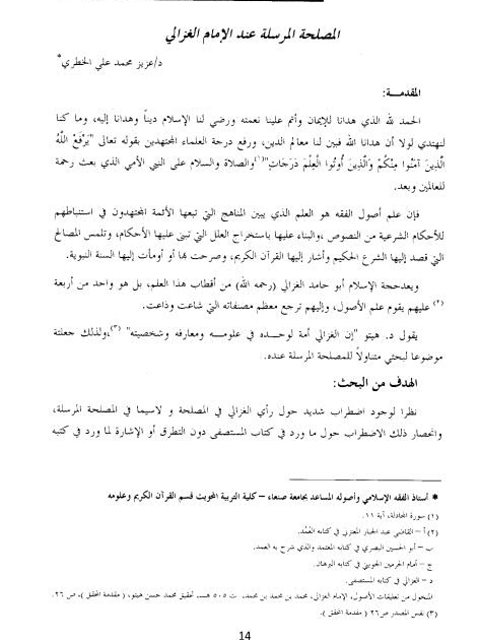 المصلحة المرسلة عند الإمام الغزالي
د/عزيز محمد علي الخطري*
المقدمـة:
الحمد لله الذي هدانا للإيمان وأتم علينا نعمته ورضي لنا الإسلام ديناً وهدانا إليه، وما كنا
لنهتدي لولا أن هدانا الله فبين لنا معالم الدين، ورفع درجة العلماء المجتهدين بقوله تعالى "يَرْفَعِ اللَّهُ
الَّذِينَ آمَنُوا مِنكُمْ وَالَّذِينَ أُوتُوا الْعِلْمَ دَرَجَاتٍ"(١)والصلاة والسلام على النبي الأمي الذي بعث رحمة
للعالمين وبعد.
فإن علم أصول الفقه هو العلم الذي يبين المناهج التي تبعها الأئمة المجتهدون في استنباطهم
للأحكام الشرعية من النصوص ،والبناء عليها باستخراج العلل التي تبنى عليها الأحكام، وتلمس المصالح
التي قصد إليها الشرع الحكيم وأشار إليها القرآن الكريم، وصرحت بها أو أومأت إليها السنة النبوية.
ويعدحجة الإسلام أبو حامد الغزالي (رحمه الله) من أقطاب هذا العلم، بل هو واحد من أربعة
(٢) عليهم يقوم علم الأصول، وإليهم ترجع معظم مصنفاته التي شاعت وذاعت.
يقول د. هيتو "إن الغزالي أمة لوحـــده في علومـــه ومعارفه وشخصيته" (٣)،ولذلك جعلته
موضوعا لبحثي متناولاً للمصلحة المرسلة عنده.
الهدف من البحث:
نظرا لوجود اضطراب شديد حول رأي الغزالي في المصلحة و لاسيما في المصلحة المرسلة،
وانحصار ذلك الاضطراب حول ما ورد في كتاب المستصفى دون التطرق أو الإشارة لما ورد في كتبه
* أستاذ الفقه الإسلامي وأصوله المساعد بجامعة صنعاء – كلية التربية المحويت قسم القرآن الكريم وعلومه
(١) سورة المجادلة، آية ١١.
(٢) أ – القاضي عبد الجبار المعتزلي في كتابه العُمَد.
ب – أبو الحسين البصري في كتابه المعتمد والذي شرح به العمد.
ج – أمام الحرمين الجويني في كتابه البرهان.
د – الغزالي في كتابه المستصفى.
المنخول من تعليقات الأصول، الإمام الغزالي، محمد بن محمد بن محمد. ت ٥٠٥ هـــ. تحقيق محمد حسن هيتو، ( مقدمة المحقق )، ص ٢٦.
(٣) نفس المصدر ص٢٦ ( مقدمة المحقق ).
14